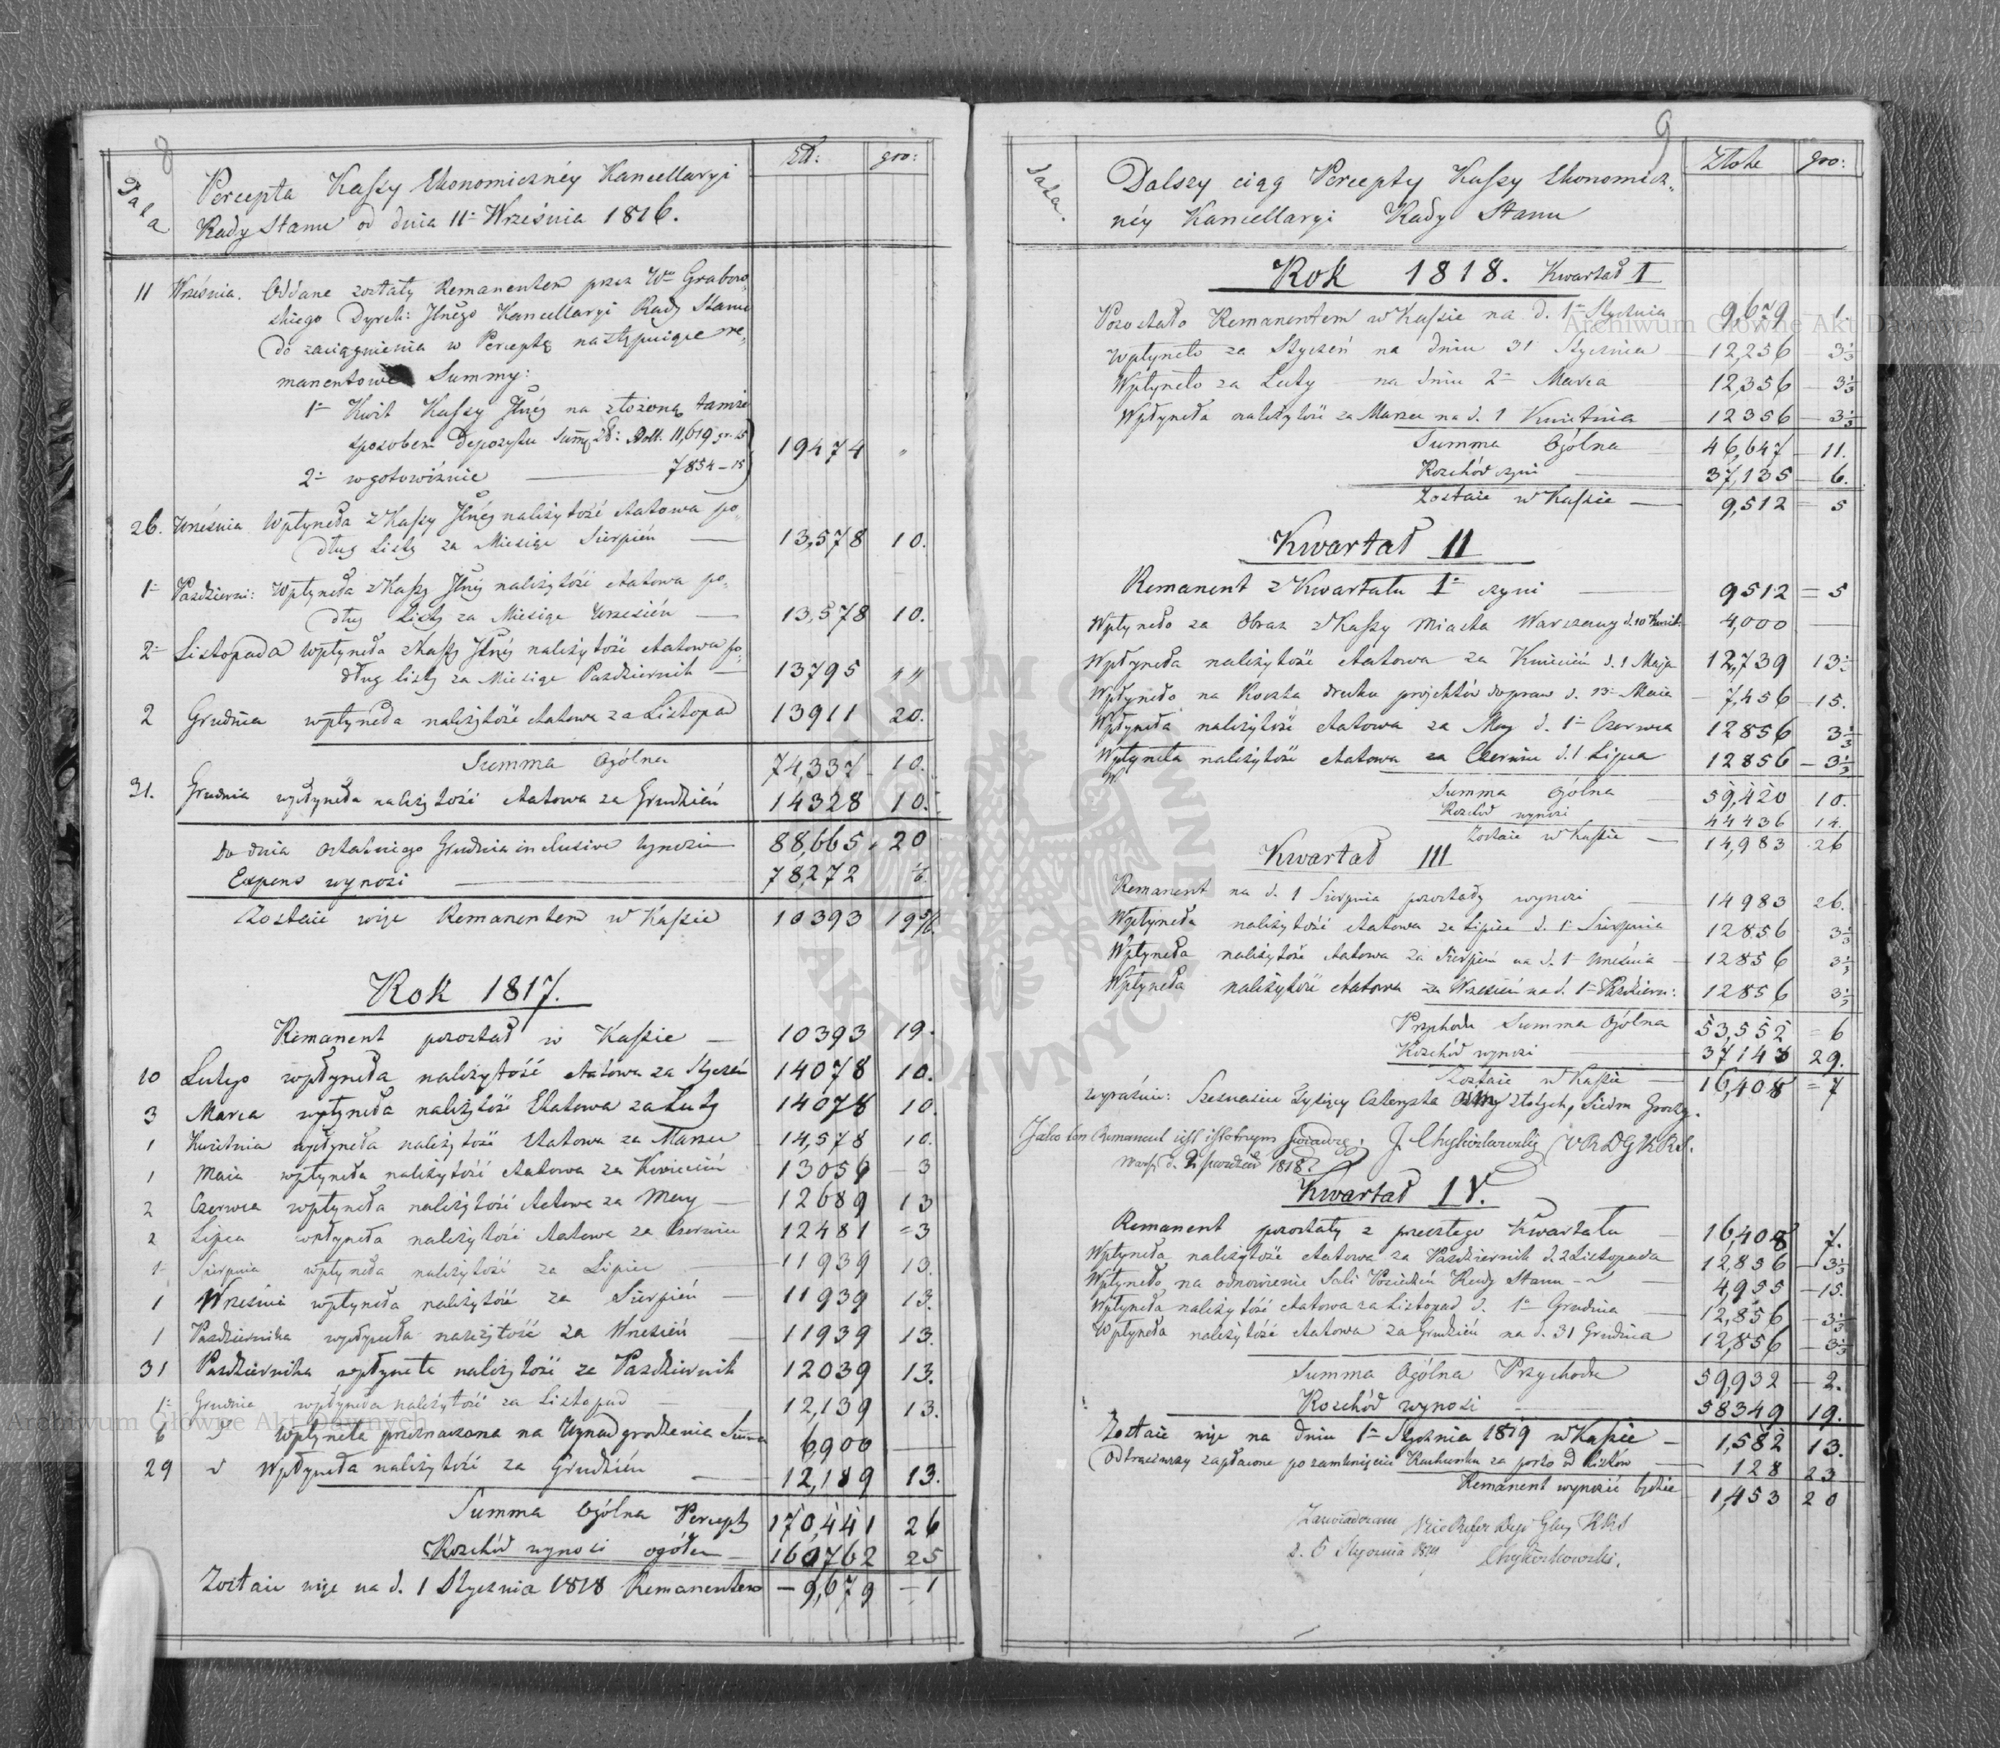 8
Data
Percepta Kassy Ekonomicznéy Kancellaryi
Rady Stanu od dnia 11 Września 1816.
Zł: gro:
11 Września. Oddane zostały Remanentem przez Wo Grabow-
skiego Dyrek: Kancellaryi Rady Stanu
do zaciągnienia w Perceptę następuiące re-
manentowe Summy:
1- Kwit Kassy na złożoną tamże
sposobem Depozytu Summę Zł: 11,619 gr. 15
2- w gotowiźnie — 7854 - 15 19474 "
26. Września Wpłynęła z Kassy należytość etatowa po-
dług Listy za Miesiąc Sierpień — 13,578 10.
1- Październi: Wpłynęła z Kassy należytość etatowa po-
dług Listy za Miesiąc Wrzesień — 13,578 10.
2- Listopada wpłynęła z Kassy należytość etatowa po-
dług listy za Miesiąc Październik — 13795 " "
2 Grudnia wpłynęła należytość etatowa za Listopad 13911 20.
Summa Ogólna 74,337 10.
31. Grudnia wpłynęła należytość etatowa za Grudzień 14328 10.
Do dnia ostatniego Grudnia inclusive wynosi 88,665 20
Expens wynosi — 78,272 1/6.
Zostaie więc Remanentem w Kassie 10393 19 5/6.
Rok 1817.
Remanent pozostał w Kassie — 10393 19.
10 Lutego wpłynęła należytość etatowa za Styczeń 14078 10.
3 Marca wpłynęła należytość Etatowa za Luty 14078 10.
1 Kwietnia wpłynęła należytość etatowa za Marzec 14,578 10.
1 Maia wpłynęła należytość etatowa za Kwiecień 13059 — 3
2 Czerwca wpłynęła należytość etatowa za May — 12689 13
2 Lipca wpłynęła należytość etatowa za Czerwiec 12481 = 3
1- Sierpnia wpłynęła należytość za Lipiec — 11939 13.
1 Września wpłynęła należytość za Sierpień — 11939 13.
1 Października wpłynęła należytość za Wrzesień — 11939 13.
31 Października wpłynęła należytość za Październik 12039 13.
1- Grudnia wpłynęła należytość za Listopad — 12,139 13.
6 Wpłynęła przeznaczona na Wynadgrodzenia Summa 6900 —
29 Wpłynęła należytość za Grudzień — 12,189 13.
Summa Ogólna Percepty 170,441 26
Rozchód wynosi ogółem — 160762 25
Zostaie więc na d. 1 Stycznia 1818 Remanentem — 9,679 — 1
9
Data.
Dalszy ciąg Percepty Kassy Ekonomicz-
néy Kancellaryi Rady Stanu
Złote gro:
Rok 1818. Kwartał I
Pozostało Remanentem w Kassie na d. 1- Stycznia 9,679 — 1.
Wpłynęło za Styczeń na dniu 31 Stycznia — 12,256 3 1/3
Wpłynęło za Luty — na dniu 2- Marca — 12,356 — 3 1/3
Wpłynęła należytość za Marzec na d. 1 Kwietnia — 12356 — 3 1/3
Summa Ogólna — 46,647 — 11.
Rozchód czyni — 37,135 — 6.
Zostaie w Kassie — 9,512 = 5
Kwartał II
Remanent z Kwartału I- czyni — 9512 = 5
Wpłynęło za Obraz z Kassy Miasta Warszawy d. 10 Kwiet: 4,000 —
Wpłynęła należytość etatowa za Kwiecień d. 1 Maja 12,739 13 1/3
Wpłynęło na Koszta druku projektów do praw d. 13- Maia — 7,456 — 15.
Wpłynęła należytość etatowa za May d. 1- Czerwca 12856 3 1/3
Wpłynęła należytość etatowa za Czerwiec d. 1 Lipca 12856 — 3 1/3
Summa Ogólna — 59,420 10.
Rozchód wynosi — 44436 14.
Zostaie w Kassie — 14,983 26
Kwartał III
Remanent na d. 1 Sierpnia pozostały wynosi — 14983 26.
Wpłynęła należytość etatowa za Lipiec d. 1- Sierpnia 12856 3 1/3
Wpłynęła należytość etatowa za Sierpień na d. 1- Września — 12856 3 1/3
Wpłynęła należytość etatowa za Wrzesień na d. 1- Październ: 12856 3 1/3
Przychodu Summa Ogólna 53,552 = 6
Rozchód wynosi — 37143 29.
Zostaie w Kassie — 16,408 = 7
wyraźnie: Szesnaście Tysięcy Czterysta Ośm Złotych, Siedm Groszy.
Jako ten Remanent iest istotnym świadczę.
Warsz. d. 1818.
Kwartał IV.
Remanent pozostały z przeszłego Kwartału — 16,408 7.
Wpłynęła należytość etatowa za Październik d. 2 Listopada 12,856 — 3 1/3
Wpłynęło na odnowienie Sali Posiedzeń Rady Stanu — 4,955 — 15.
Wpłynęła należytość etatowa za Listopad d. 1- Grudnia 12,856 — 3 1/3
Wpłynęła należytość etatowa za Grudzień na d. 31 Grudnia 12,856 — 3 1/3
Summa Ogólna Przychodu 59,932 — 2.
Rozchód wynosi — 58349 19.
Zostaie więc na dniu 1- Stycznia 1819 w Kassie — 1,582 13.
Odtrąciwszy zapłacone po zamknięciu Rachunku za porto od Listów — 128 23
Remanent wynosić będzie 1,453 20
d. 5 Stycznia 1819
Archiwum Główne Akt Dawnych
Archiwum Główne Akt Dawnych
ARCHIWUM GŁÓWNE AKT DAWNYCH